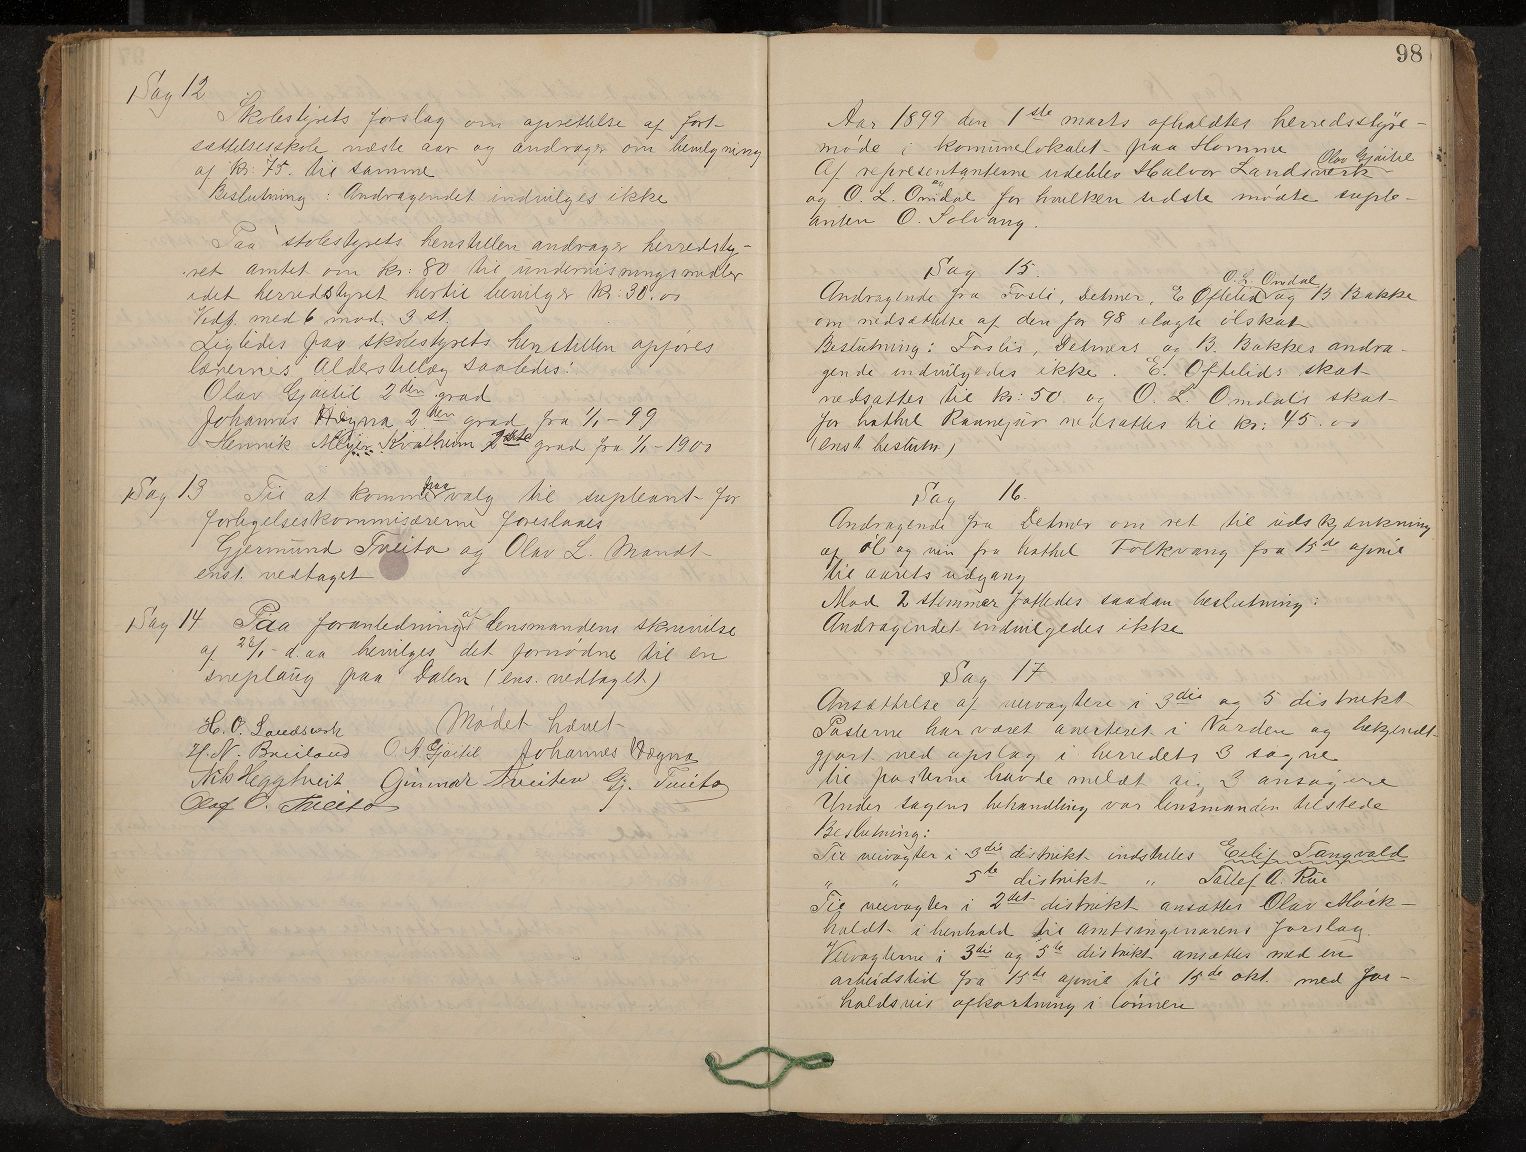 Sag 12
Skolestyrets forslag om oprettelse af fort-
sættelsesskole næste aar og andrager om bevilgning
af kr: 75. til samme
Beslutning: Andragendet indvilges ikke
Paa skolestyrets henstillen andrager herredsty-
ret amtet om kr: 80 til undervisningsmidler
idet herredstyret hertil bevilger kr: 30.00
Vedt. med 6 mod. 3 st.
Ligledes paa skolestyrets henstillen opføres
lærernes Alderstillæg saaledes:
Olav Gjøitil 2den grad
Johannes Hægna 2den grad fra 1/1-99
Henrik Meyer Kvalheim grad fra 1/1-1900
Sag 13 Til at komme paa valg til supleant for
forligelseskommisærerne foreslaaes
Gjermund Tveito og Olav L. Mandt
enst. vedtaget
Sag 14 Paa foranledning af lensmandens skrivelse
af d. aa bevilges det fornødne til en
sneplaug paa Dalen (ens. vedtaget)
Mødet hævet
H. O. Landsverk
H. N. Breiland O A Gjøitil Johannes Hægna
Nils Heggtveit Gunnar Tveiten Gj. Tveito
Olaf O. Tveito
98
Aar 1899 den 1ste marts afholdtes herredsstyre-
møde i kommunelokalet paa Homme
Af representanterne udeblev Halvor Landsverk Olav Gjøitil
og O. L. Omdal for hvilken sidste mødte suple-
anten O. Solvang.
Sag 15.
Andragende fra Fosli, Detmer, E Oftelid O. L. Omdal og B Bakke
om nedsættelse af den for 98 ilagte ølskat
Beslutning: Foslis, Detmers og B. Bakkes andra-
gende indvilgedes ikke. E. Oftelids skat
nedsattes til kr: 50 og O. L. Omdals skat
for hothel Ravnejuv nedsattes til kr: 45.00
(enst beslutn)
Sag 16.
Andragende fra Detmer om ret til udskjænkning
af øl og vin fra hothel Folkvang fra 15de april
til aarets udgang
Mod 2 stemmer fattedes saadan beslutning:
Andragendet indvilgedes ikke
Sag 17
Ansættelse af veivogtere i 3die og 5 distrikt
Posterne har været averteret i Varden og bekjendt-
gjort ved opslag i herredets 3 sogne
til posterne havde meldt sig 3 ansøgere
Under sagens behandling var lensmanden tilstede
Beslutning:
Til veivogter i 3die distrikt indstilles Eilif Tangvald
" " 5te distrikt " Tallef A. Rue
Til veivogter i 2det distrikt ansættes Olav Mörk-
holdt i henhold til amtsingeniørens forslag.
Veivogterne i 3die og 5te distrikt ansættes med en
arbeidstid fra 15de april til 15de okt. med for-
holdsvis afkortning i lönnen